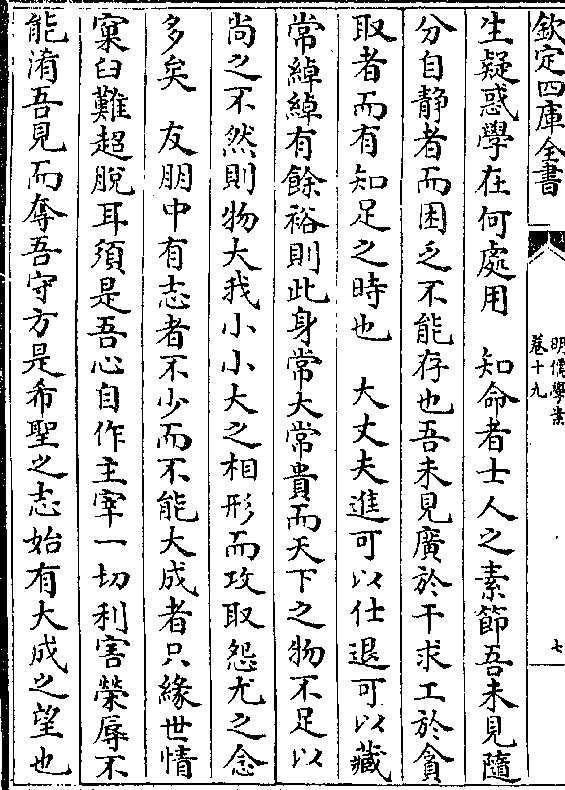 欽定四庫全書
明儒學案
卷十九
七
生疑惑學在何處用　知命者士人之素節吾未見隨
分自静者而困乏不能存也吾未見廣於干求工於貪
取者而有知足之時也　大丈夫進可以仕退可以藏
常綽綽有餘裕則此身常大常貴而天下之物不足以
尚之不然則物大我小小大之相形而攻取怨尤之念
多矣　友朋中有志者不少而不能大成者只緣世情
窠臼難超脱耳須是吾心自作主宰一切利害榮辱不
能淆吾見而奪吾守方是希聖之志始有大成之望也